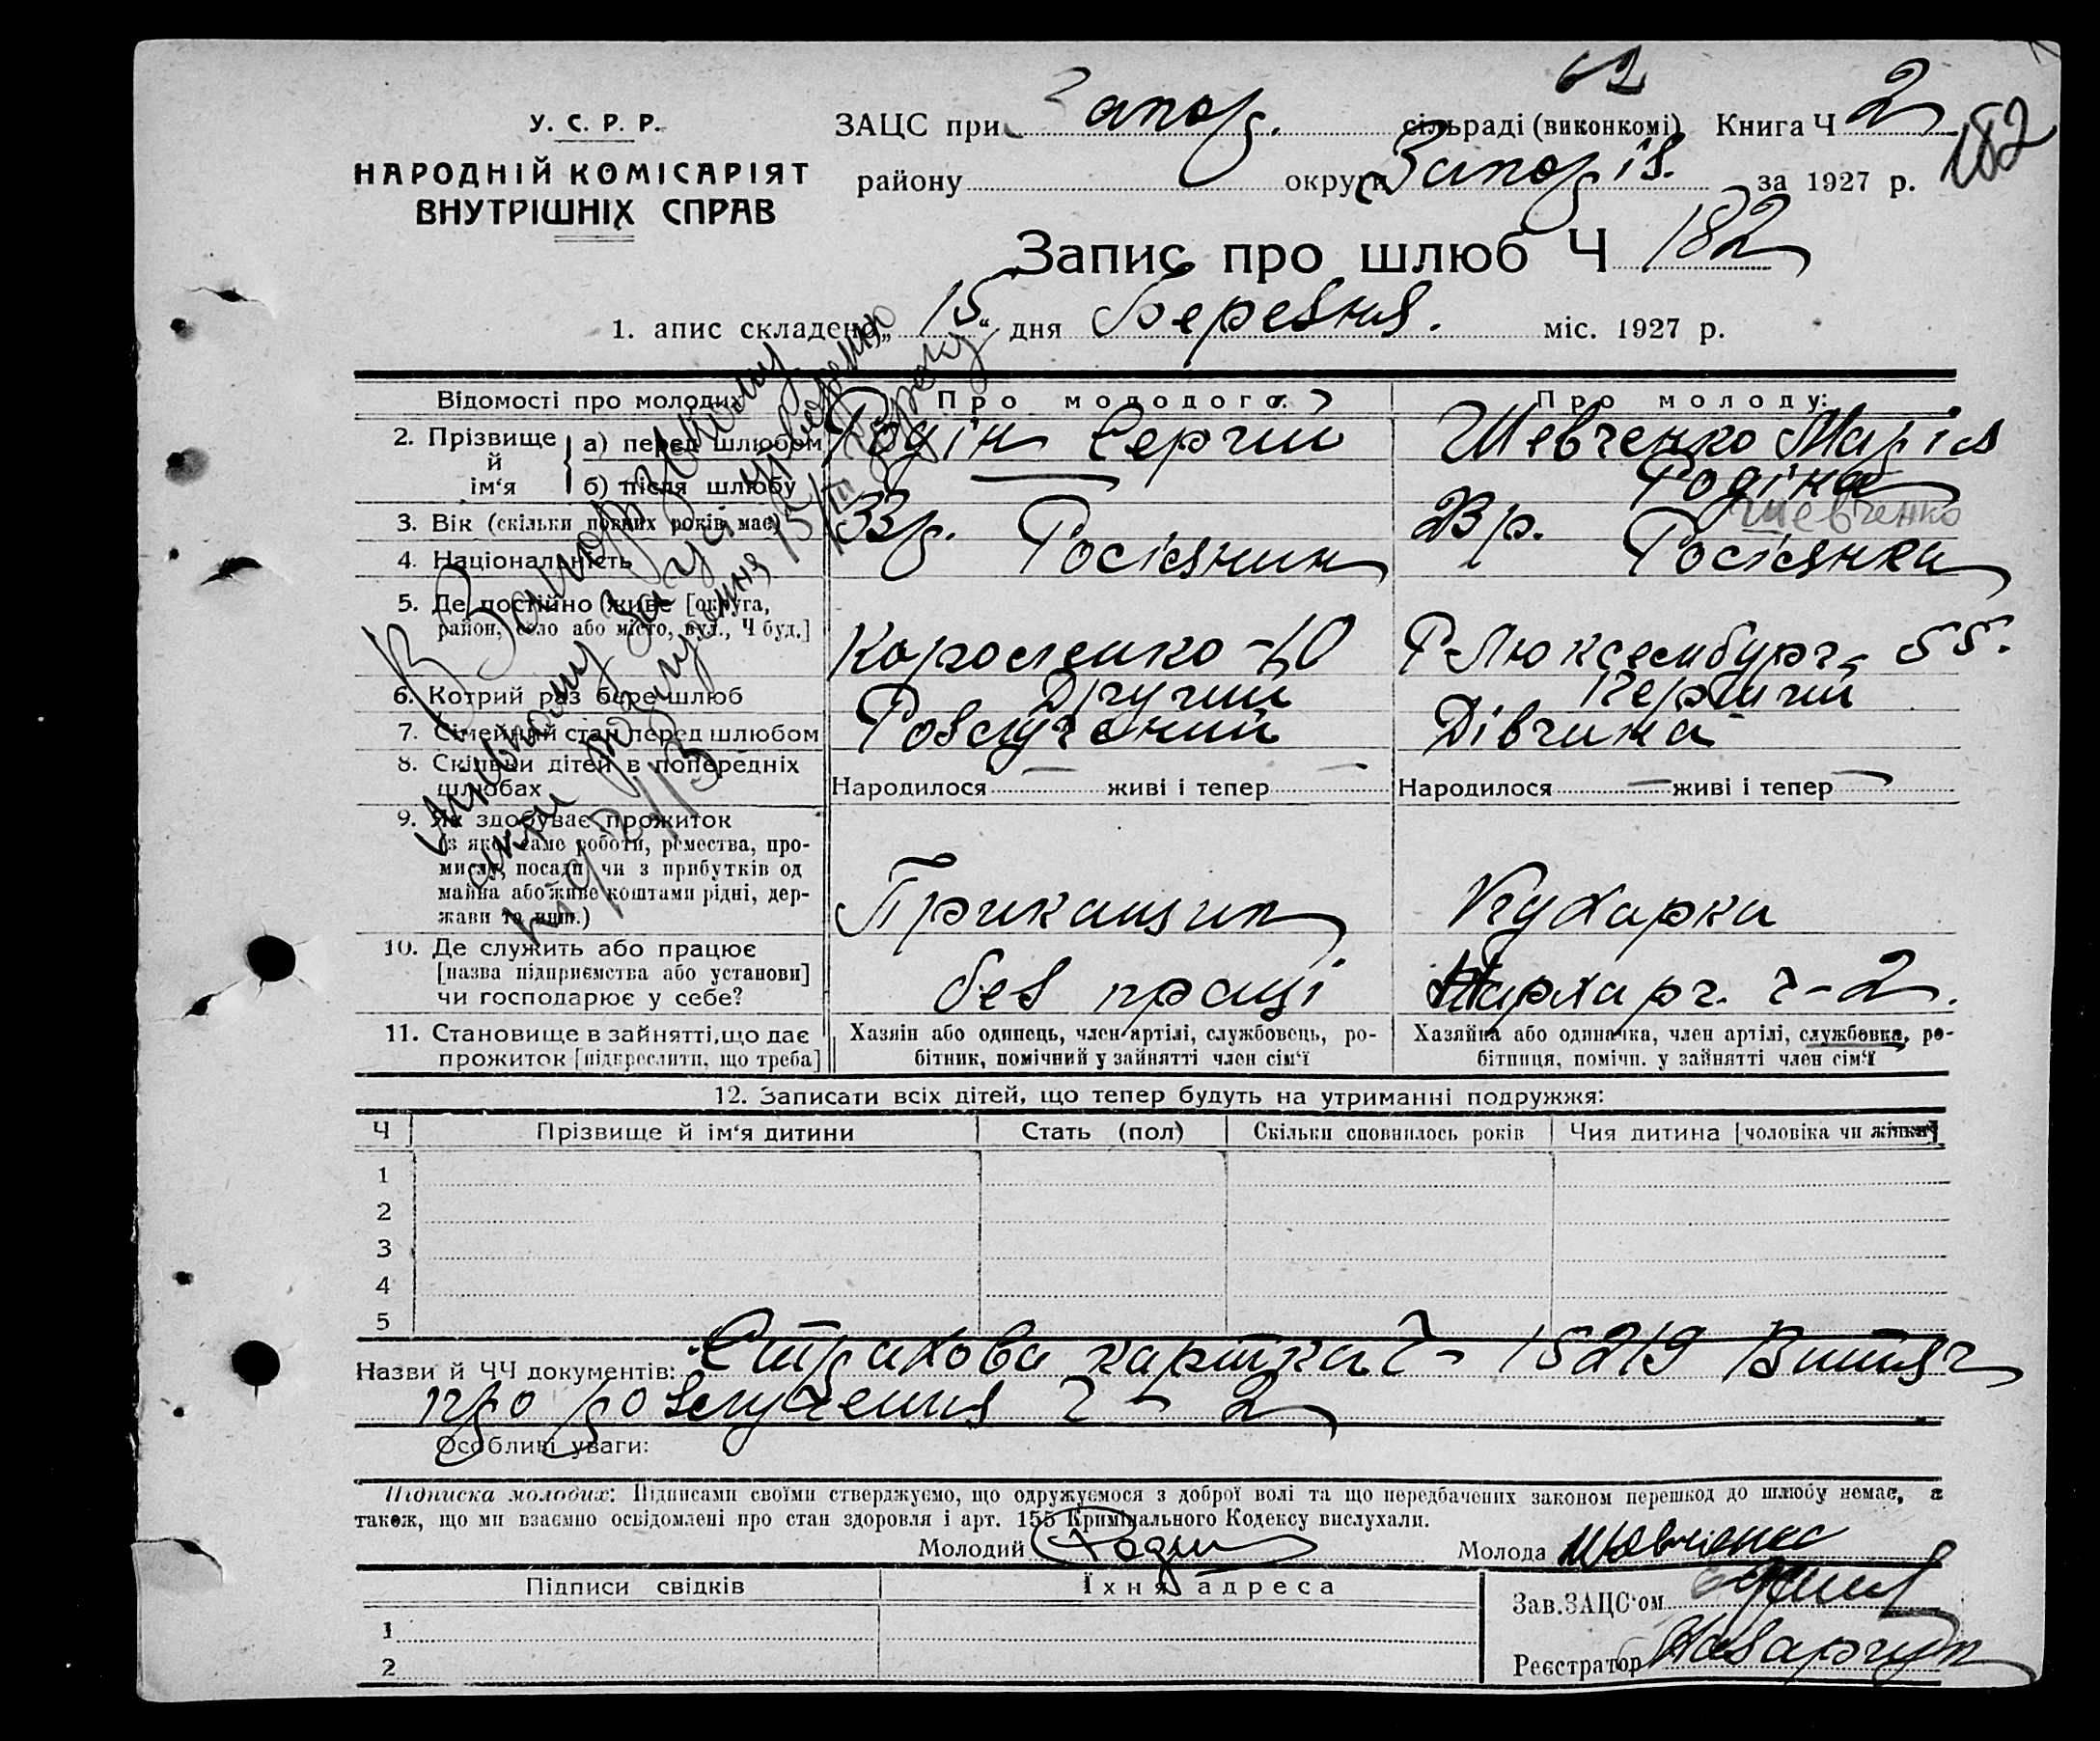 62
У. С. Р. Р.
НАРОДНІЙ КОМІСАРІЯТ
ВНУТРІШНІХ СПРАВ
ЗАЦС при Запор. сільраді (виконкомі) Книга Ч 2
182
району округи Запоріз. за 1927 р.
Запис про шлюб Ч 182
1. апис складено „ 15 “ дня Березня. міс. 1927 р.
Відомості про молодих Про молодого: Про молоду:
2. Прізвище й ім‘я
а) перед шлюбом Родін Сергій Шевченко Марія
б) після шлюбу — Родіна
Шевченко
3. Вік (скільки повних років має) 33 р. 23 р.
4. Національність Росіянин Росіянка
5. Де постійно живе [округа,
район, село або місто, вул., Ч буд.]
Короленко - 40 Р-Люксембург - 55.
6. Котрий раз бере шлюб Другий Перший
7. Сімейний стан перед шлюбом Розлучений Дівчина
8. Скільки дітей в попередніх
шлюбах Народилося — живі і тепер — Народилося — живі і тепер —
9. Як здобуває прожиток
(з якої саме роботи, ремества, про-
мислу, посади, чи з прибутків од
майна або живе коштами рідні, дер-
жави та инш.)
Прикащик Кухарка
10. Де служить або працює
[назва підприємства або установи]
чи господарює у себе?
без праці Нархарч. ч-2.
11. Становище в зайнятті, що дає
прожиток [підкреслити, що треба]
Хазяїн або одинець, член артілі, службовець, ро-
бітник, помічний у зайнятті член сім‘ї
Хазяйка або одиначка, член артілі, службовка, ро-
бітниця, помічн. у зайнятті член сім‘ї
12. Записати всіх дітей, що тепер будуть на утриманні подружжя:
Ч Прізвище й ім‘я дитини Стать (пол) Скільки сповнилось років Чия дитина [чоловіка чи жінки]
1
2
3
4
5
Назви й ЧЧ документів: Страхова картка ч- 15219 Витяг
про розлучення ч- 2
Особливі уваги:
Підписка молодих: Підписами своїми стверджуємо, що одружуємося з доброї волі та що передбачених законом перешкод до шлюбу немає, а
також, що ми взаємно освідомлені про стан здоровля і арт. 155 Кримінального Кодексу вислухали.
Молодий Родин Молода Шевченко
Підписи свідків Їхня адреса
1
2
Зав. ЗАЦС‘ом
Реєстратор Назарчук